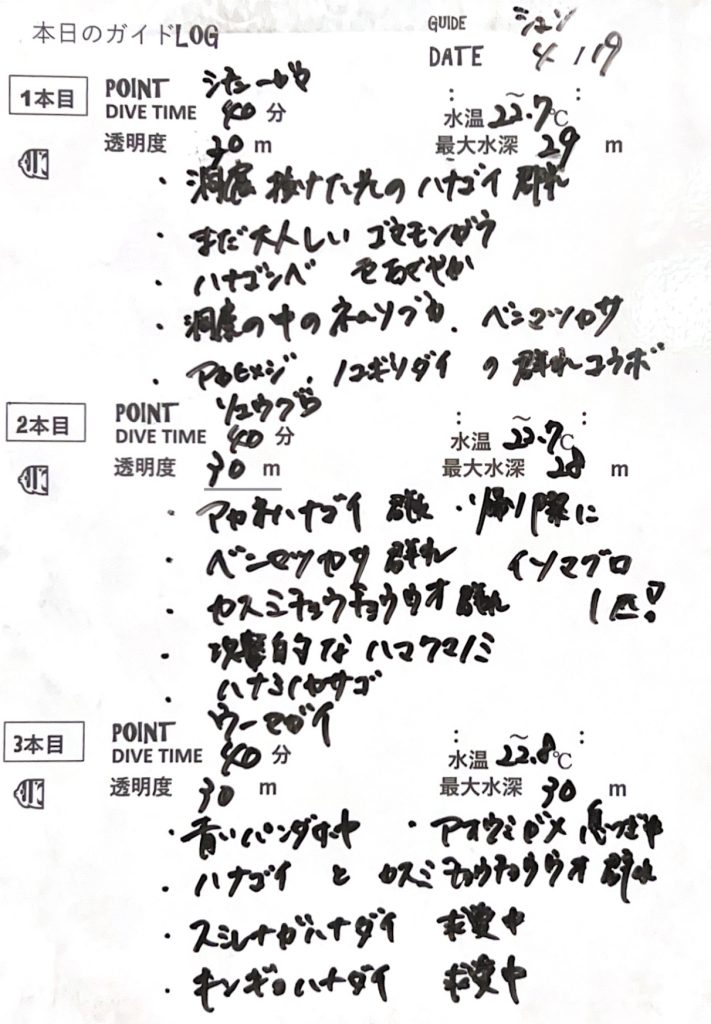 本日のガイドLOG
GUIDE シュン
DATE 4/19
1本目
POINT シチューガマ
DIVE TIME 40分
水温 ~22.7℃
透明度 30m
最大水深 29m
・洞窟抜けた先のハナゴイ群れ
・まだ大人しいゴマモンガラ
・ハナゴンベ
・洞窟の中のネムリブカ、ベンマツカサ
・アカヒメジ、ノコギリダイの群れコラボ
2本目
POINT リュウグウ
DIVE TIME 40分
水温 ~22.7℃
透明度 30m
最大水深 28m
・アカネハナゴイ群れ
・帰り際に
・ベンマツカサ群れ
イソマグロ
・カスミチョウチョウウオ群れ
1匹!
・攻撃的なハマクマノミ
・ハナミノカサゴ
3本目
POINT ウーマガイ
DIVE TIME 40分
水温 ~22.8℃
透明度 30m
最大水深 30m
・青いパンダホヤ
・アオウミガメ 息つぎ中
・ハナゴイとカスミチョウチョウウオ群れ
・スミレナガハナダイ 求愛中
・キンギョハナダイ 求愛中